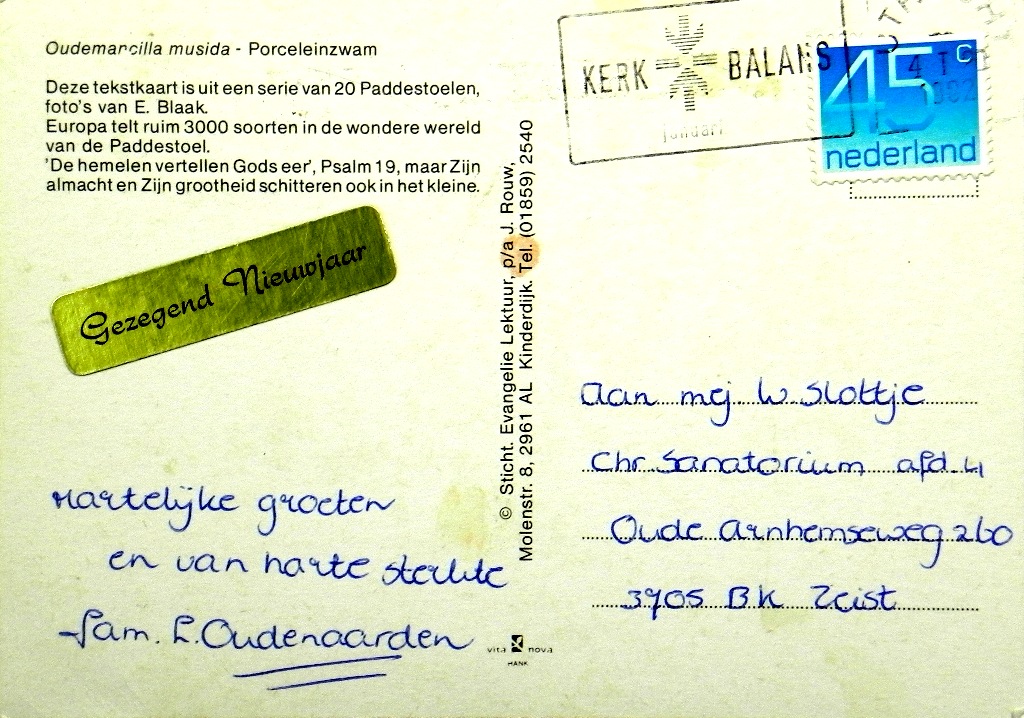 Oudemarcilla musida - Porceleinzwam
Deze tekstkaart is uit een serie van 20 Paddestoelen,
foto's van E. Blaak.
Europa telt ruim 3000 soorten in de wondere wereld
van de Paddestoel.
'De hemelen vertellen Gods eer', Psalm 19, maar Zijn
almacht en Zijn grootheid schitteren ook in het kleine.
Gezegend Nieuwjaar
Hartelijke groeten
en van harte sterkte
Fam. L. Oudenaarden
© Sticht. Evangelie Lektuur, p/a J. Rouw,
Molenstr. 8, 2961 AL Kinderdijk. Tel. (01859) 2540
vita nova
HANK
KERK BALANS
januari
45 c
nederland
Aan mej W Slottje
Chr Sanatorium afd. 4
Oude Arnhemseweg 260
3705 BK Zeist